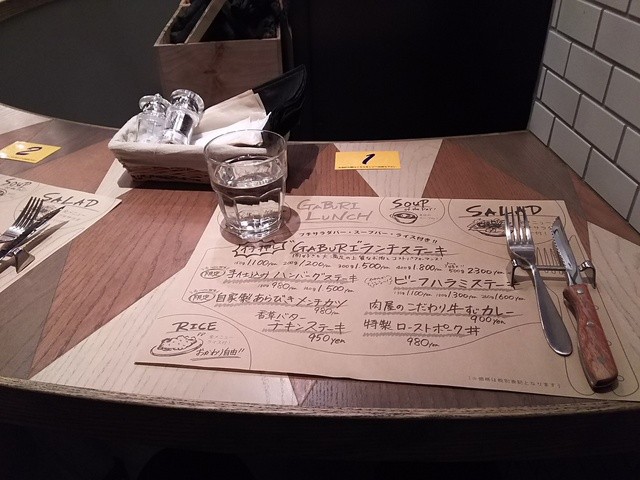 2
1
SOUP
SALAD
GABURI
LUNCH
SOUP
SALAD
プチサラダバー・スープバー・ライス付き!!
GABURIランチステーキ
1100yen 200g 1200yen 300g 1500yen 400g 1800yen 500g 2300yen
限定 手仕込みハンバーグステーキ
980yen 1500yen
ビーフハラミステーキ
1100yen 1300yen 200g 1600yen
限定 自家製あらびきメンチカツ
980yen
肉屋のこだわり牛すじカレー
900yen
香草バター
チキンステーキ
950yen
特製ローストポーク丼
980yen
RICE
おかわり自由!!